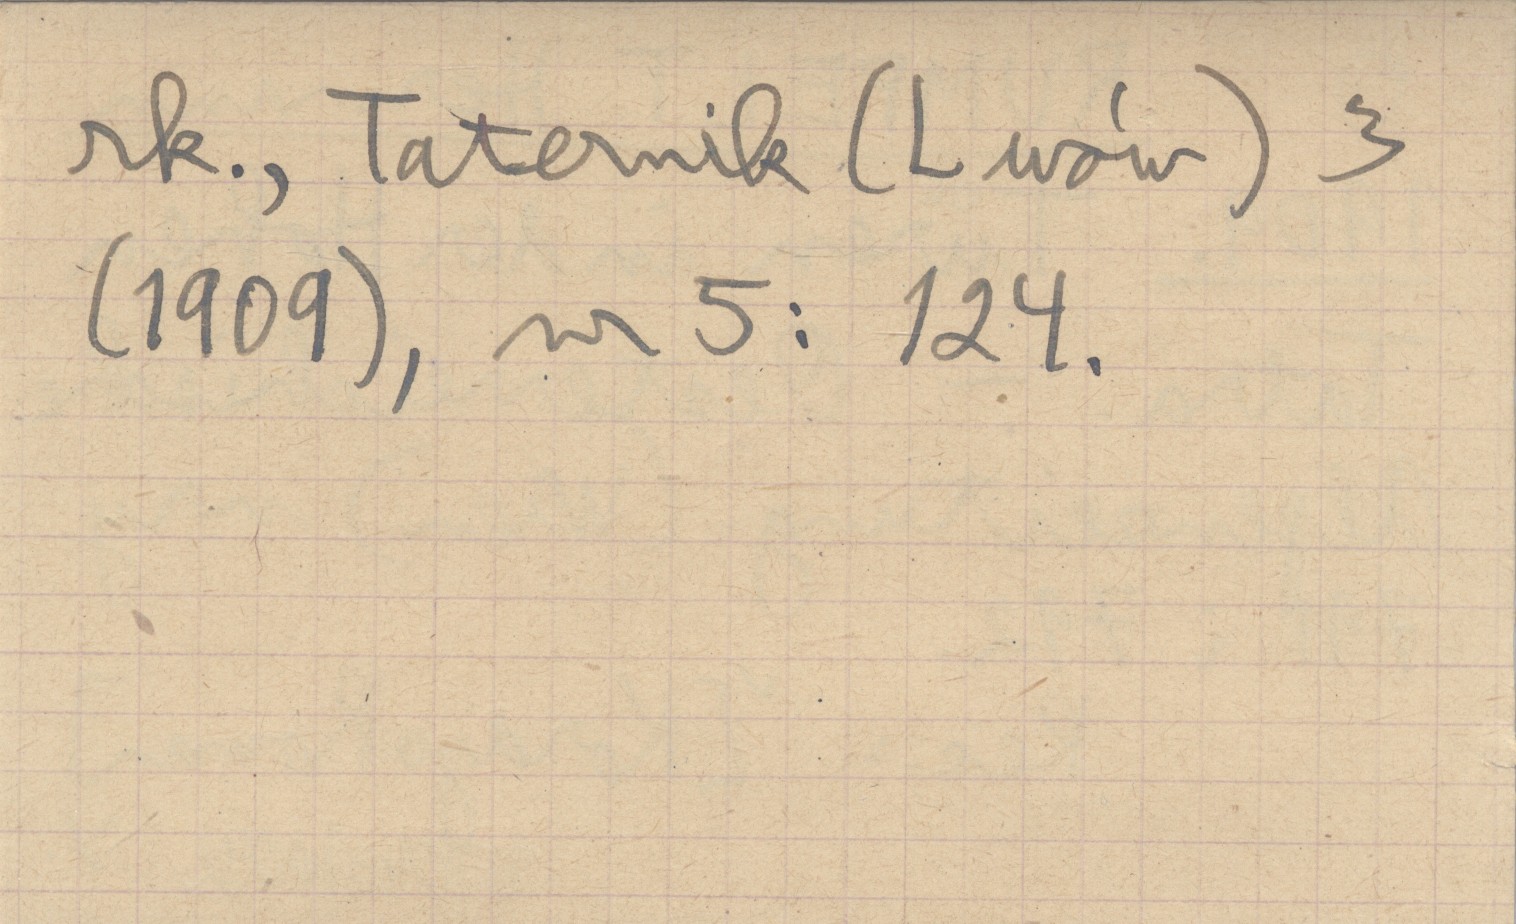 rk., Taternik (Lwów) 3
(1909), nr 5: 124.